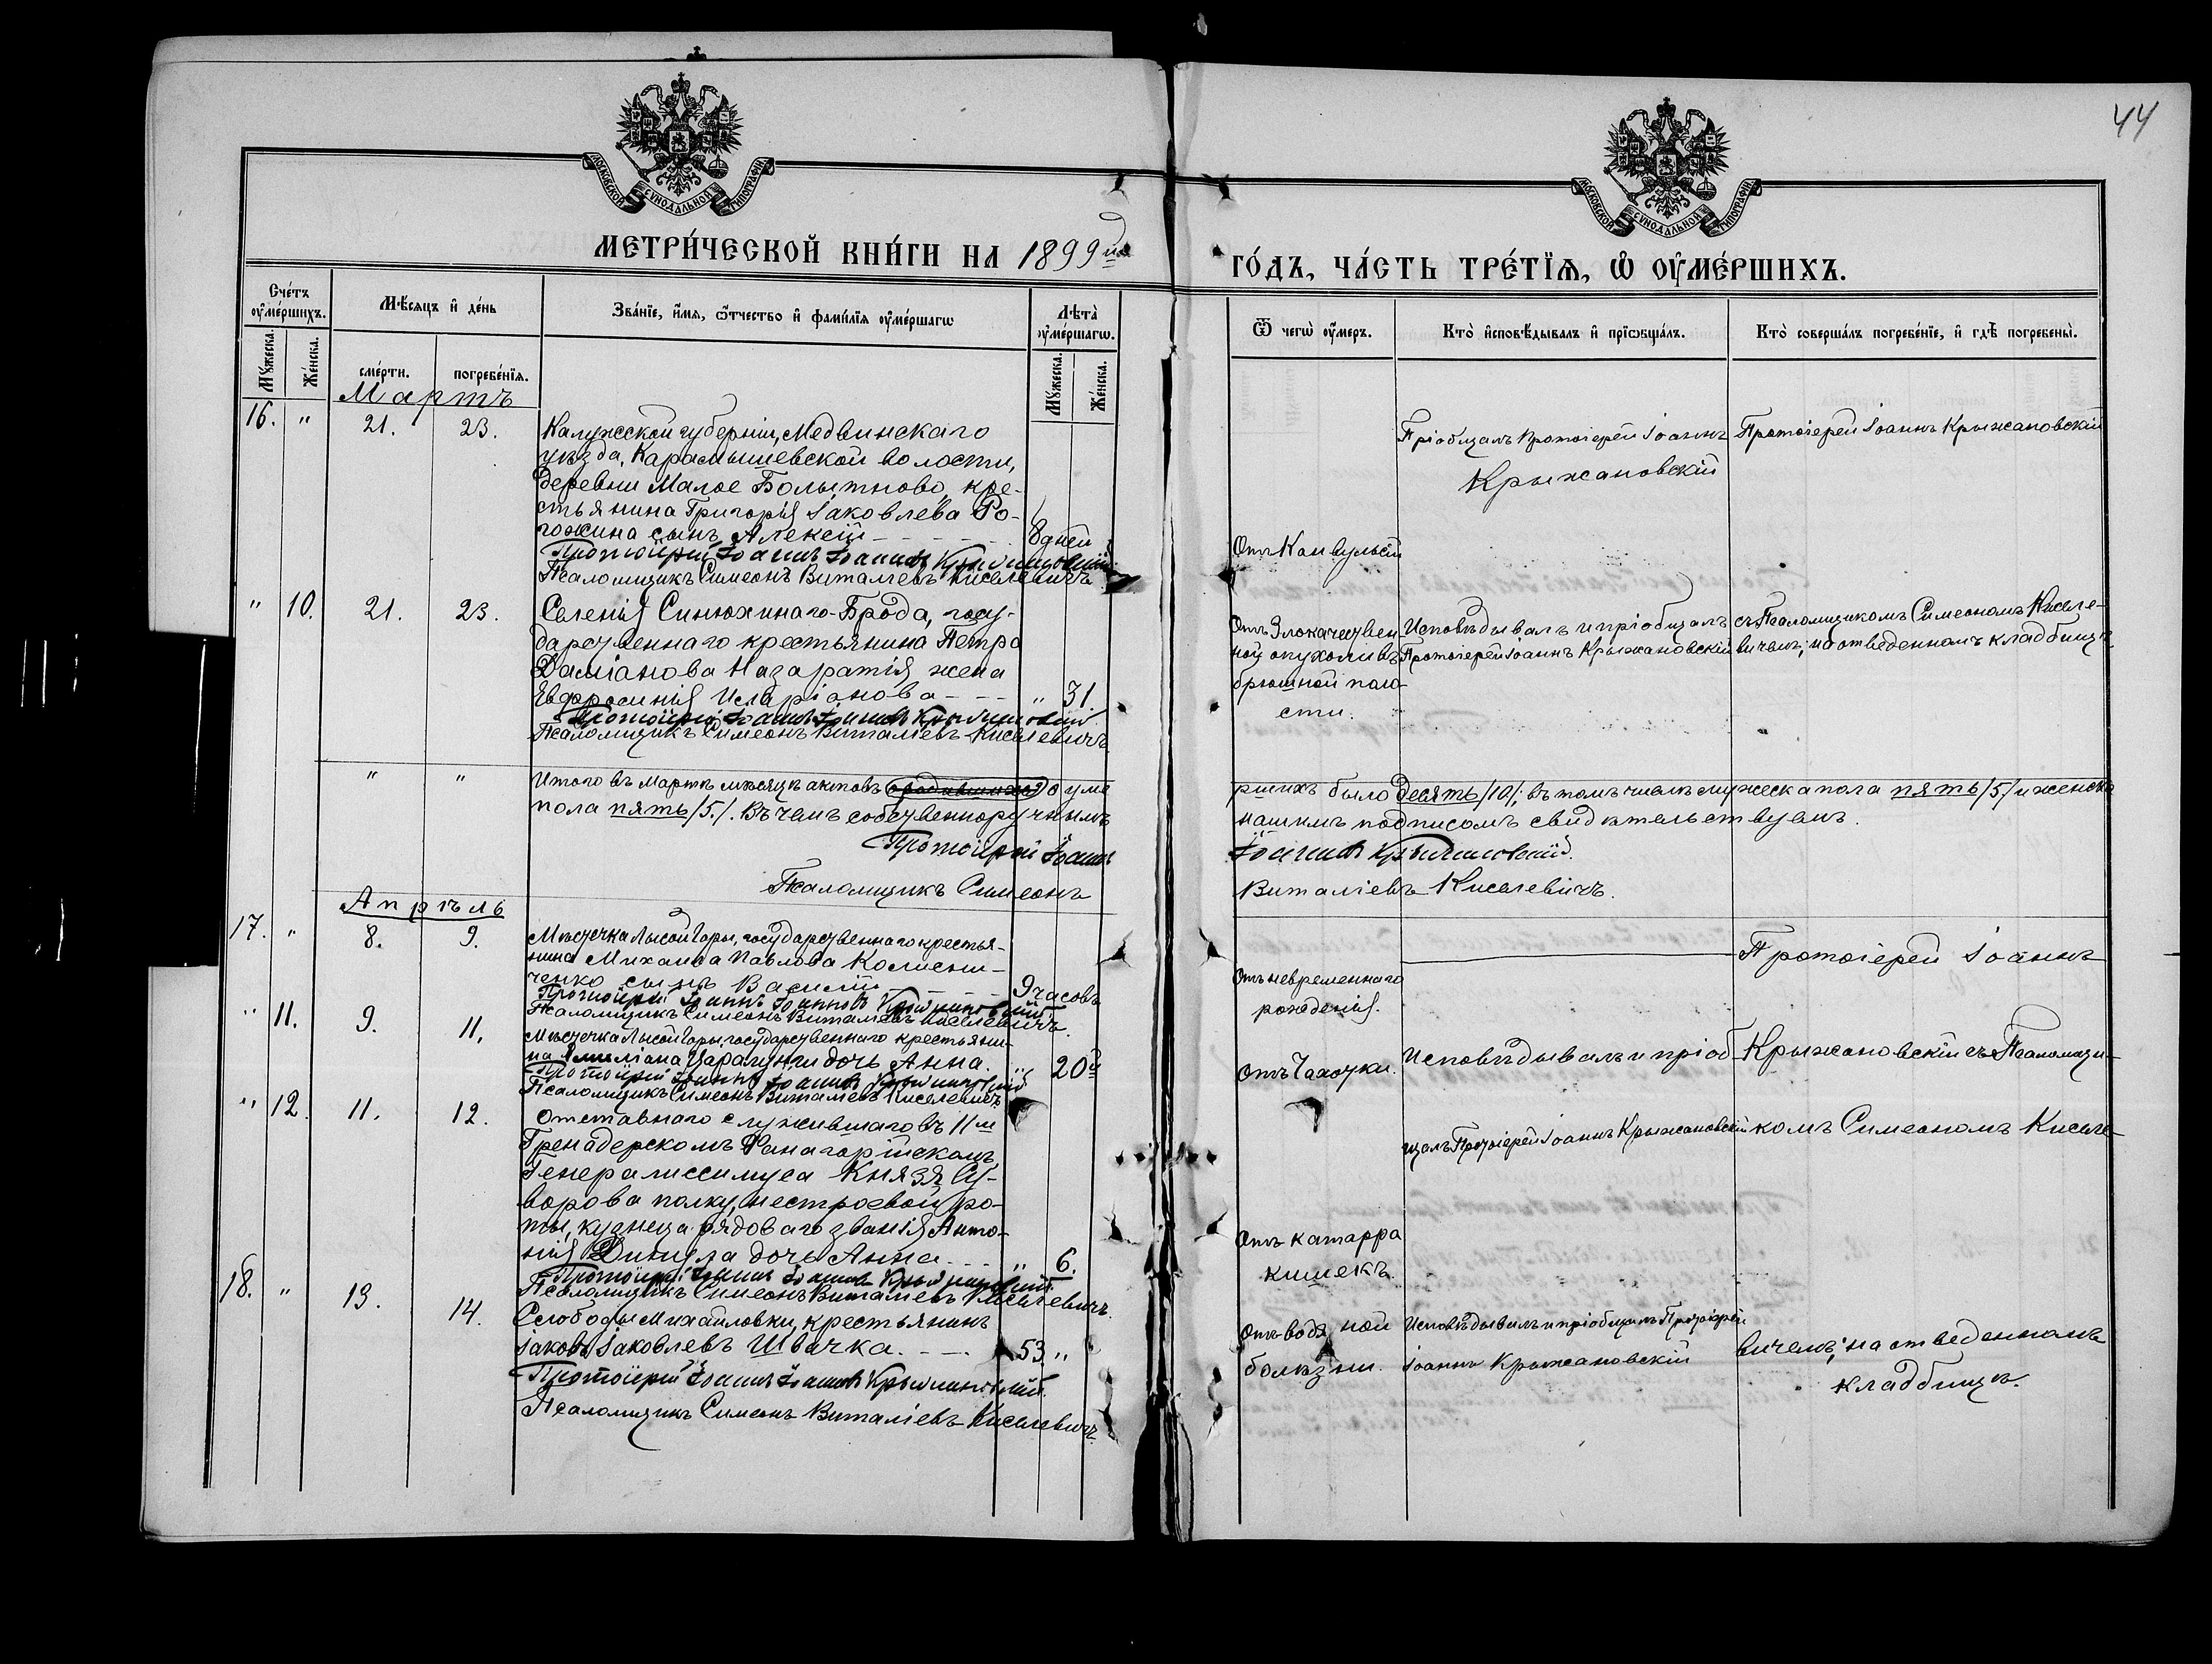 44
МОСКОВСКОЙ СУНОДАЛЬНОЙ ТИПОГРАФІИ
МОСКОВСКОЙ СУНОДАЛЬНОЙ ТИПОГРАФІИ
МЕТРИ́ЧЕСКОЙ КНИ́ГИ НА 1899й
ГО́ДЪ, ЧА́СТЬ ТРЕ́ТІѦ, Ѡ҆ ОУ҆МЕ́РШИХЪ.
Сче́тъ оу҆ме́ршихъ.
Мѣ́сѧцъ и҆ де́нь
Зва́нїе, и҆́мѧ, ѻ҆́тчество и҆ фами́лїѧ оу҆ме́ршагѡ
Лѣ́та оу҆ме́ршагѡ.
Мꙋ́жеска.
Же́нска.
сме́рти.
погребе́нїѧ.
Мꙋ́жеска.
Же́нска.
Ѿ чегѡ̀ оу҆́меръ.
Кто̀ и҆сповѣ́дывалъ и҆ прїѡбща́лъ.
Кто̀ соверша́лъ погребе́нїе, и҆ гдѣ̀ погребены̀.
Мартъ
16. " 21. 23.
Калужской губерніи, Медвинскаго
уѣзда, Карамышевской волости,
деревни Малое Болытново, кре-
стьянина Григорія Іаковлева Ро-
гожина сынъ Алексій 8 дней
Протоіерей Іоаннъ Іоанновъ Крыжановскій
Псаломщикъ Симеонъ Виталіевъ Киселевичъ
Отъ Конвульсій
Пріобщалъ Протоіерей Іоаннъ
Крыжановскій
Протоіерей Іоаннъ Крыжановскій
" 10. 21. 23.
Селенія Синюхинаго-Брода, госу-
дарственнаго крестьянина Петра
Даміанова Назаратія жена
Евфросинія Иларіонова " 31.
Протоіерей Іоаннъ Іоанновъ Крыжановскій
Псаломщикъ Симеонъ Виталіевъ Киселевичъ
Отъ Злокачествен
ной опухоли въ
брюшной поло-
сти.
Исповѣдывалъ и пріобщалъ
Протоіерей Іоаннъ Крыжановскій
съ Псаломщикомъ Симеономъ Киселе-
вичемъ; на отведенномъ кладбищѣ
" " Итого въ Мартѣ мѣсяцѣ актовъ о родившихся о уме
ршихъ было десять /10/; въ томъ числѣ мужеска пола пять /5/ и женска
пола пять /5./. Въ чемъ собственноручнымъ
нашимъ подписомъ свидѣтельствуемъ.
Протоіерей Іоаннъ
Іоанновъ Крыжановскій.
Псаломщикъ Симеонъ
Виталіевъ Киселевичъ.
Апрѣль
17. " 8. 9.
Мѣстечка Лысой Горы, государственнаго крестья-
нина Михаила Павлова Колисни-
ченко сынъ Василій 9 часовъ
Протоіерей Іоаннъ Іоанновъ Крыжановскій
Псаломщикъ Симеонъ Виталіевъ Киселевичъ.
Отъ невременнаго
рожденія.
Протоіерей Іоаннъ
" 11. 9. 11.
Мѣстечка Лысой Горы, государственнаго крестьяни-
на Емиліана Царалунги дочь Анна. " 20й
Протоіерей Іоаннъ Іоанновъ Крыжановскій
Псаломщикъ Симеонъ Виталіевъ Киселевичъ.
Отъ Чахотки.
Исповѣдывалъ и пріоб
Крыжановскій съ Псаломщи-
" 12. 11. 12.
Отставнаго служившаго въ 11м
Гренадерскомъ Фанагорійскомъ
Генералиссимуса Князя Су-
ворова полку, нестроевой ро-
ты, кузнеца рядоваго званія Анто-
нія Динула дочь Анна " 6.
Протоіерей Іоаннъ Іоанновъ Крыжановскій
Псаломщикъ Симеонъ Виталіевъ Киселевичъ
Отъ катарра
кишекъ.
щалъ Протоіерей Іоаннъ Крыжановскій
комъ Симеономъ Киселе-
18. " 13. 14.
Слободы Михайловки, крестьянинъ
Іаковъ Іаковлевъ Швачка. 53 "
Протоіерей Іоаннъ Іоанновъ Крыжановскій.
Псаломщикъ Симеонъ Виталіевъ Киселевичъ.
Отъ водяной
болѣзни.
Исповѣдывалъ и пріобщалъ Протоіерей
Іоаннъ Крыжановскій
вичемъ; на отведенномъ
кладбищѣ.